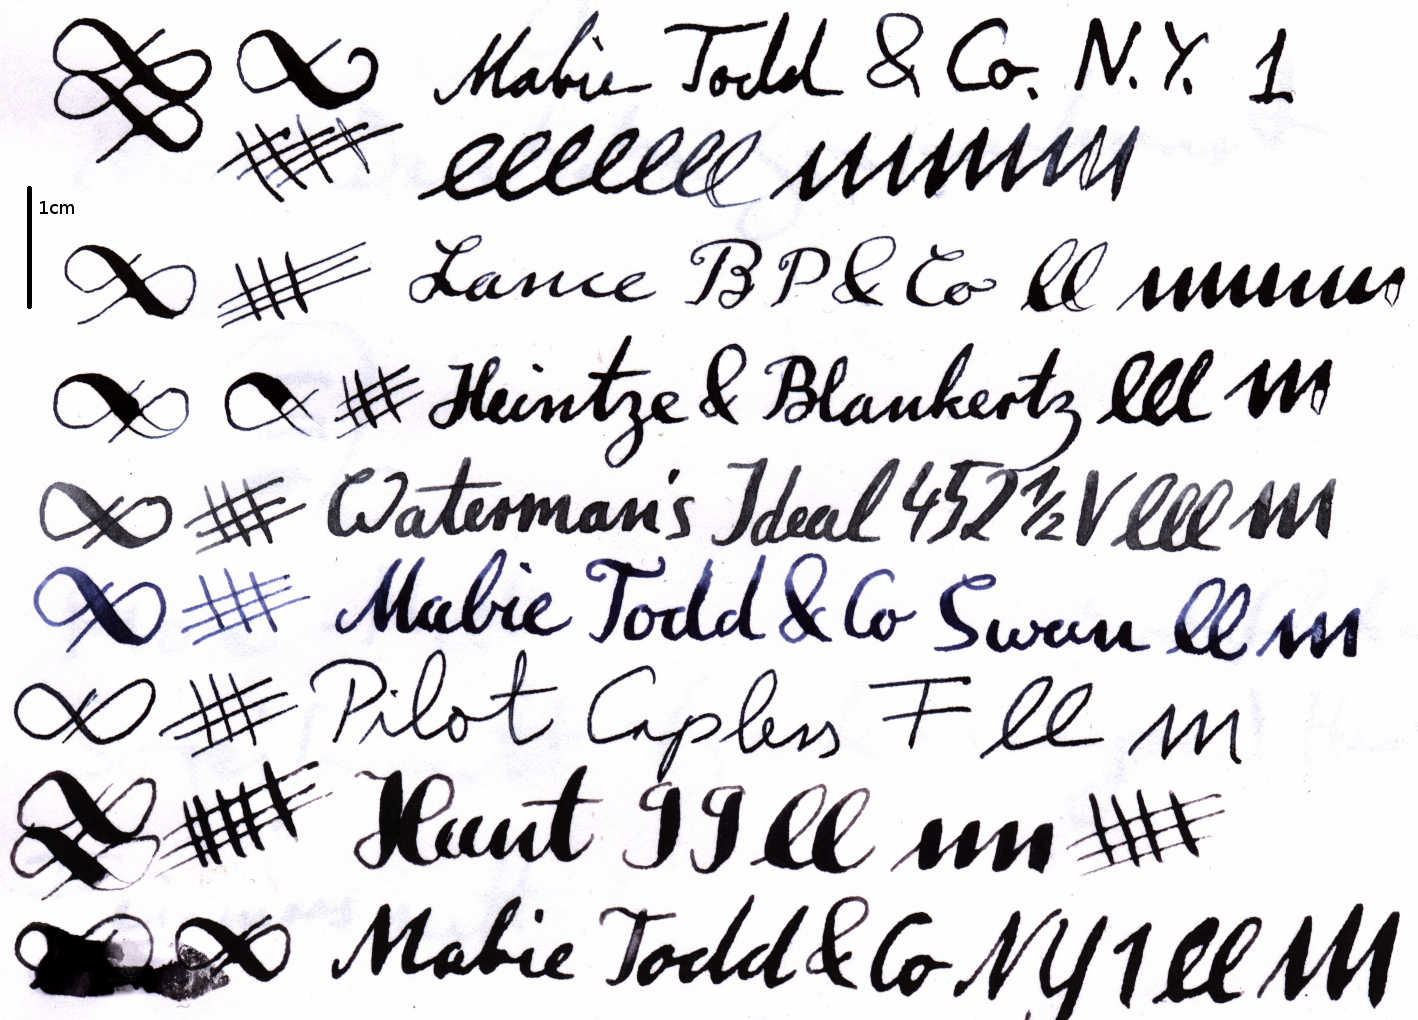 Mabie Todd & Co. N.Y. 1
1cm
lllllll uuuuuu
Lance BP & Co ll uuuuu
Heintze & Blankertz lll m
Waterman's Ideal 452 1/2 V lll m
Mabie Todd & Co Swan ll m
Pilot Capless F ll m
Haut 99 ll un
Mabie Todd & Co NY 1 ll m